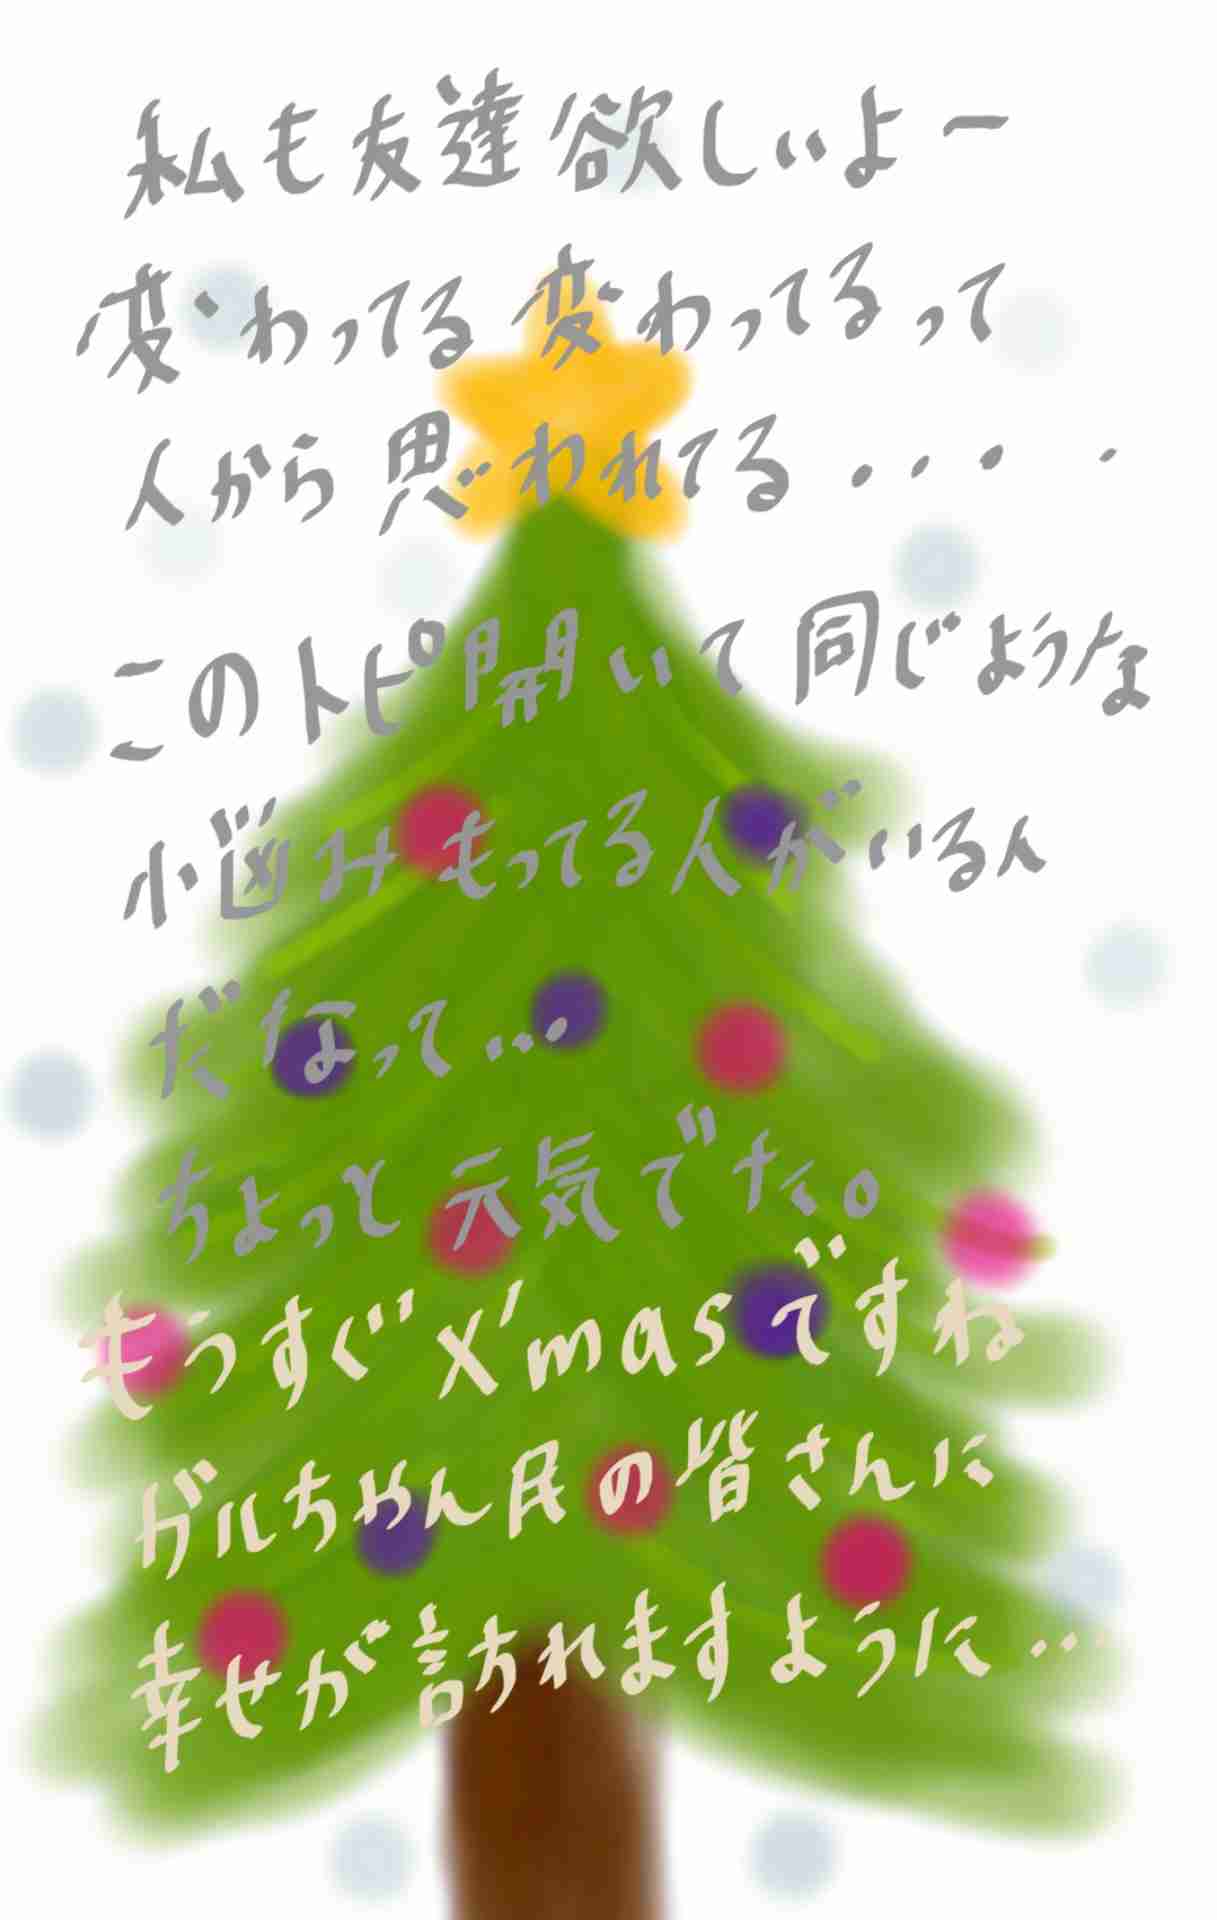 私も友達欲しぃよー
変わってる変わってるって
人から思われてる・・・・
このトピ開いて同じような
悩みもってる人がいるん
だなって…
ちょっと元気でた。
もうすぐX'masですね
ガルちゃん民の皆さんに
幸せが訪れますように…